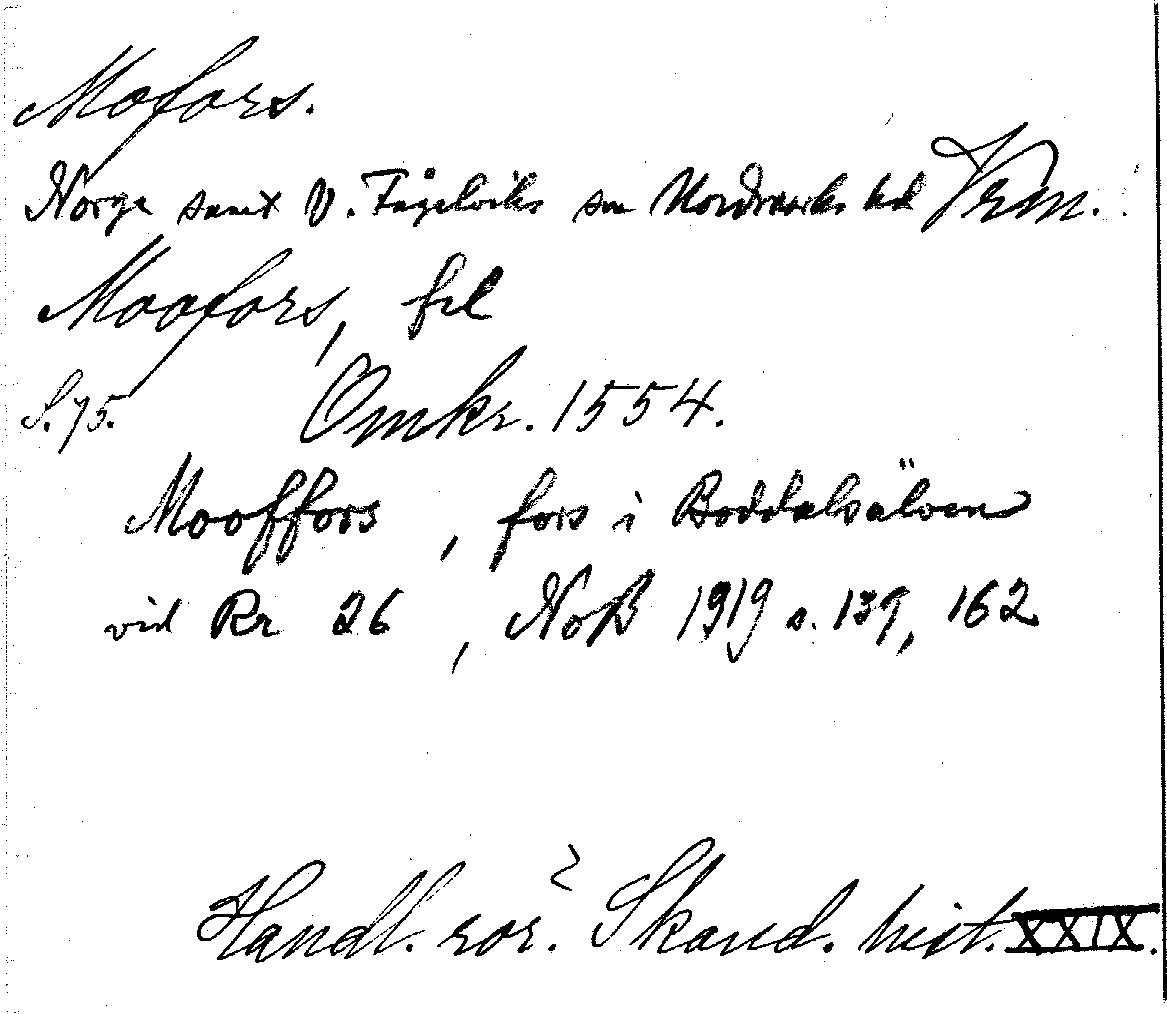 Mofors.
Norge samt V. Fågelviks sn Nordmarks hd Vrm.
Moofors, frl
S. 75. Omkr. 1554.
Mooffors, fors i Boddalsälven
vid Rr 26, NoB 1919 s. 139, 162
Handl. rör. Skand. hist. XXIX.